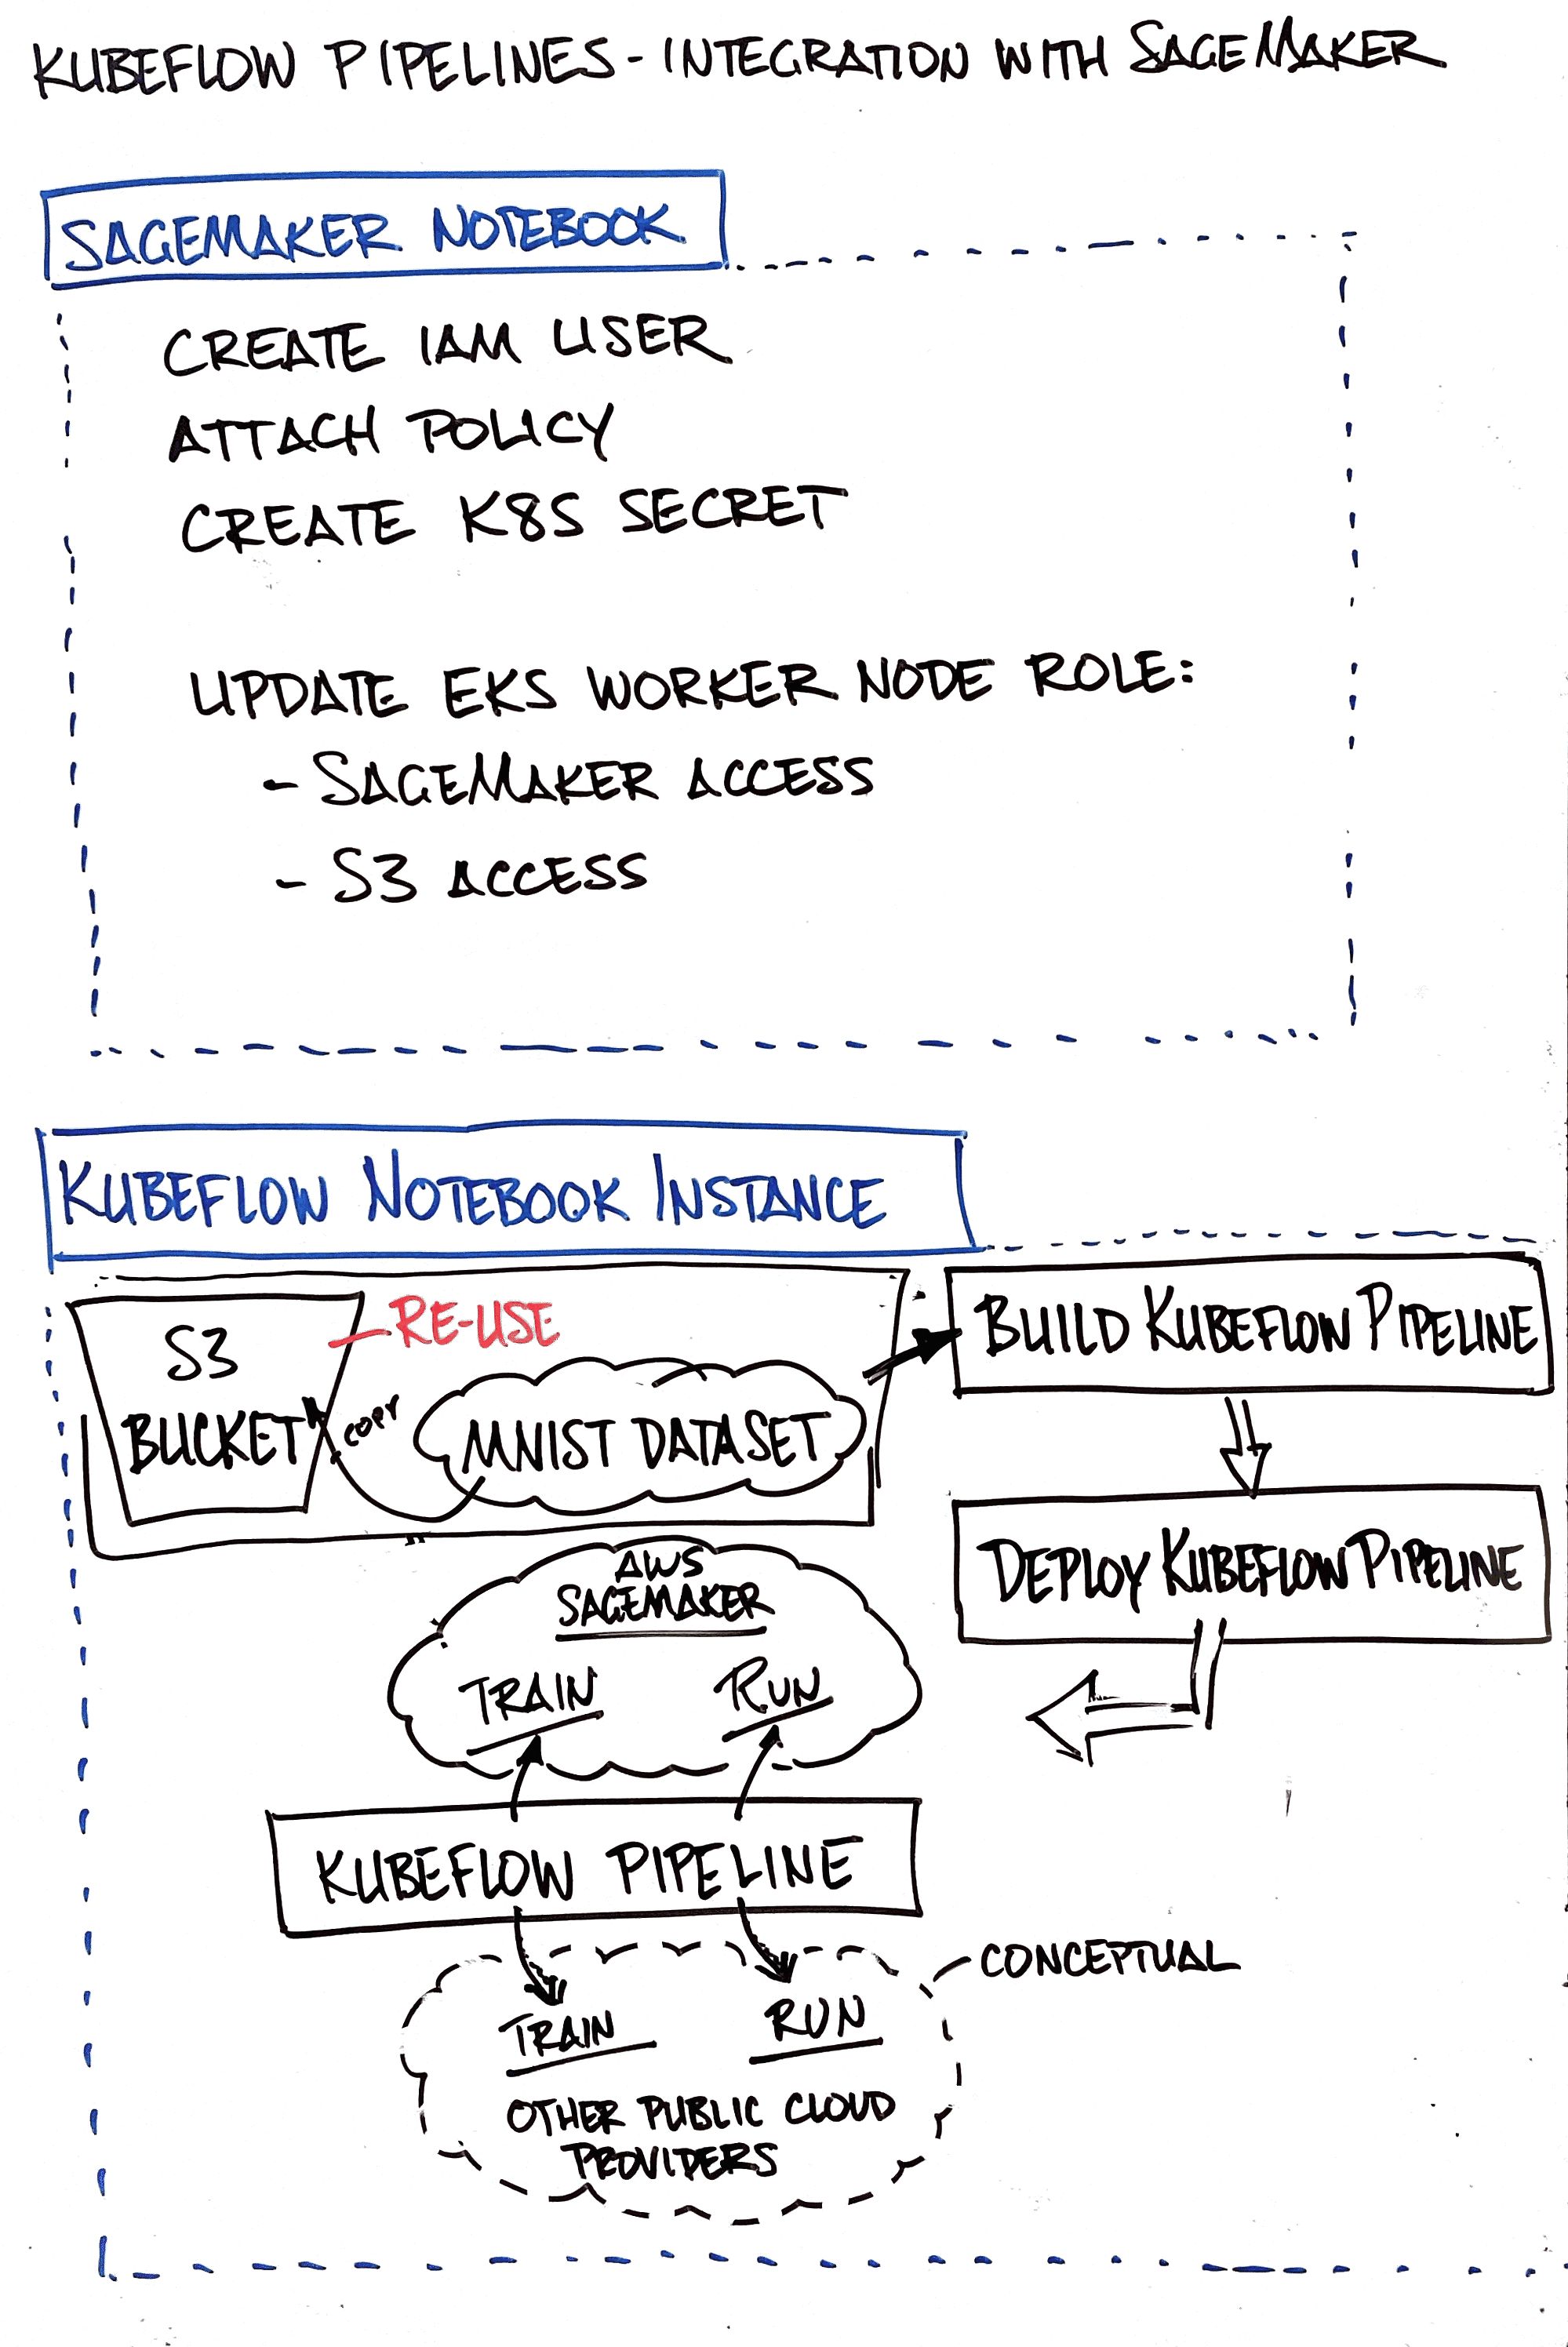 KUBEFLOW PIPELINES - INTEGRATION WITH SAGEMAKER
SAGEMAKER NOTEBOOK
CREATE IAM USER
ATTACH POLICY
CREATE K8S SECRET
UPDATE EKS WORKER NODE ROLE:
- SAGEMAKER ACCESS
- S3 ACCESS
KUBEFLOW NOTEBOOK INSTANCE
S3
BUCKET
RE-USE
COPY
MNIST DATASET
BUILD KUBEFLOW PIPELINE
DEPLOY KUBEFLOW PIPELINE
AWS
SAGEMAKER
TRAIN RUN
KUBEFLOW PIPELINE
CONCEPTUAL
TRAIN RUN
OTHER PUBLIC CLOUD
PROVIDERS